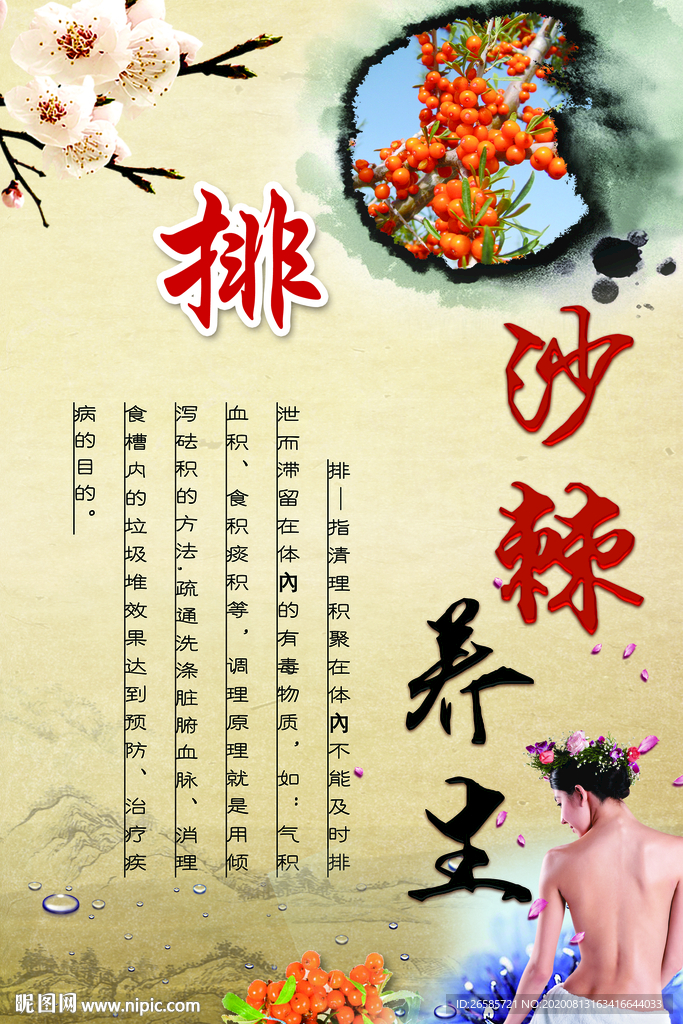 排
沙棘
养生
排—指清理积聚在体內不能及时排
泄而滞留在体內的有毒物质，如：气积
血积、食积痰积等，调理原理就是用倾
泻砝积的方法.疏通洗涤脏腑血脉、消理
食槽内的垃圾堆效果达到预防、治疗疾
病的目的。
昵图网 www.nipic.com
ID:26585721 NO:20200813163416644033